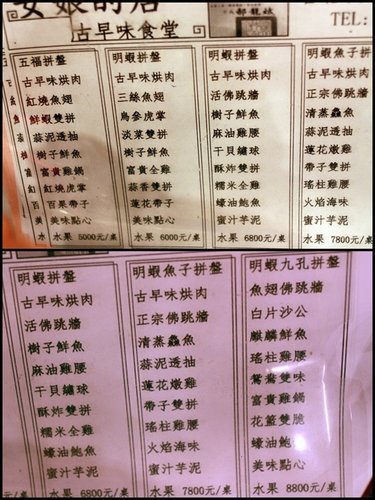 古早味食堂
TEL:
五福拼盤
古早味烘肉
紅燒魚翅
鮮蝦雙拼
蒜泥透抽
樹子鮮魚
富貴雞鍋
紅燒虎掌
百果帶子
美味點心
水果 5000元/桌
明蝦拼盤
古早味烘肉
三絲魚翅
烏參虎掌
淡菜雙拼
樹子鮮魚
富貴全雞
蒜香雙拼
蓮花帶子
美味點心
水果 6000元/桌
明蝦拼盤
古早味烘肉
活佛跳牆
樹子鮮魚
麻油雞腰
干貝繡球
酥炸雙拼
糯米全雞
蠔油鮑魚
蜜汁芋泥
水果 6800元/桌
明蝦魚子拼
古早味烘肉
正宗佛跳牆
清蒸鱻魚
蒜泥透抽
蓮花燉雞
帶子雙拼
瑤柱雞腰
火焰海味
蜜汁芋泥
水果 7800元/桌
明蝦拼盤
古早味烘肉
活佛跳牆
樹子鮮魚
麻油雞腰
干貝繡球
酥炸雙拼
糯米全雞
蠔油鮑魚
蜜汁芋泥
水果 6800元/桌
明蝦魚子拼盤
古早味烘肉
正宗佛跳牆
清蒸鱻魚
蒜泥透抽
蓮花燉雞
帶子雙拼
瑤柱雞腰
火焰海味
蜜汁芋泥
水果 7800元/桌
明蝦九孔拼盤
魚翅佛跳牆
白片沙公
麒麟鮮魚
瑤柱雞腰
鴛鴦雙味
富貴雞鍋
花籃雙脆
蠔油鮑
美味點心
水果 8800元/桌